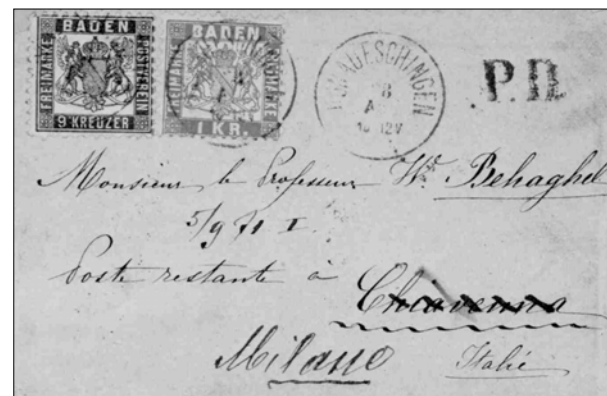 BADEN
FREIMARKE
POSTVEREIN
9 KREUZER
BADEN
FREIMARKE
1 KR.
DONAUESCHINGEN
28
A
12V
P.D.
Monsieur le Professeur Wm Behaghel
5/9 71 I
Poste restante à Chiavenna
Milano Italie